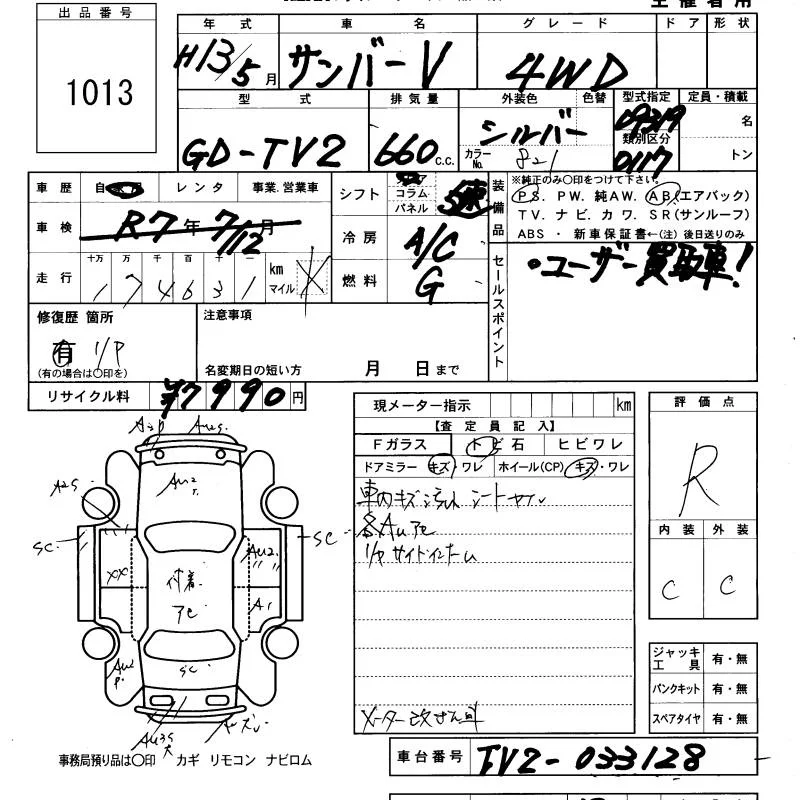 出品番号
1013
年式 車名 グレード ドア 形状
H13/5月 サンバーV 4WD
型式 排気量 外装色 色替 型式指定 定員・積載
GD-TV2 660 c.c. シルバー 09319 名
カラーNo. 821 類別区分 0117 トン
車歴 レンタ 事業.営業車 シフト コラム パネル 5速
装備品 ※純正のみ○印をつけて下さい。
PS. PW. 純AW. AB(エアバック)
TV. ナビ. カワ. SR(サンルーフ)
ABS ・ 新車保証書←(注) 後日送りのみ
車検 R7年7/12月 冷房 A/C
走行 十万 万 千 百 十 一 km マイル
174631
燃料 G
セールスポイント
・ユーザー買取車!
修復歴 箇所 注意事項
有 I/P
(有の場合は○印を) 名変期日の短い方 月 日まで
リサイクル料 ¥7990円
現メーター指示 km
【査定員記入】
Fガラス トビ石 ヒビワレ
ドアミラー キズ・ワレ ホイール(CP) キズ・ワレ
各AuアC
I/Pサイドインナーム
メーター改ざん車
評価点
R
内装 外装
C C
ジャッキ工具 有・無
パンクキット 有・無
スペアタイヤ 有・無
A2S
SC. SC.
XX
Au2
付着
アC
A1
SC
Au2P.
事務局預り品は○印 カギ リモコン ナビロム
車台番号 TV2-033128